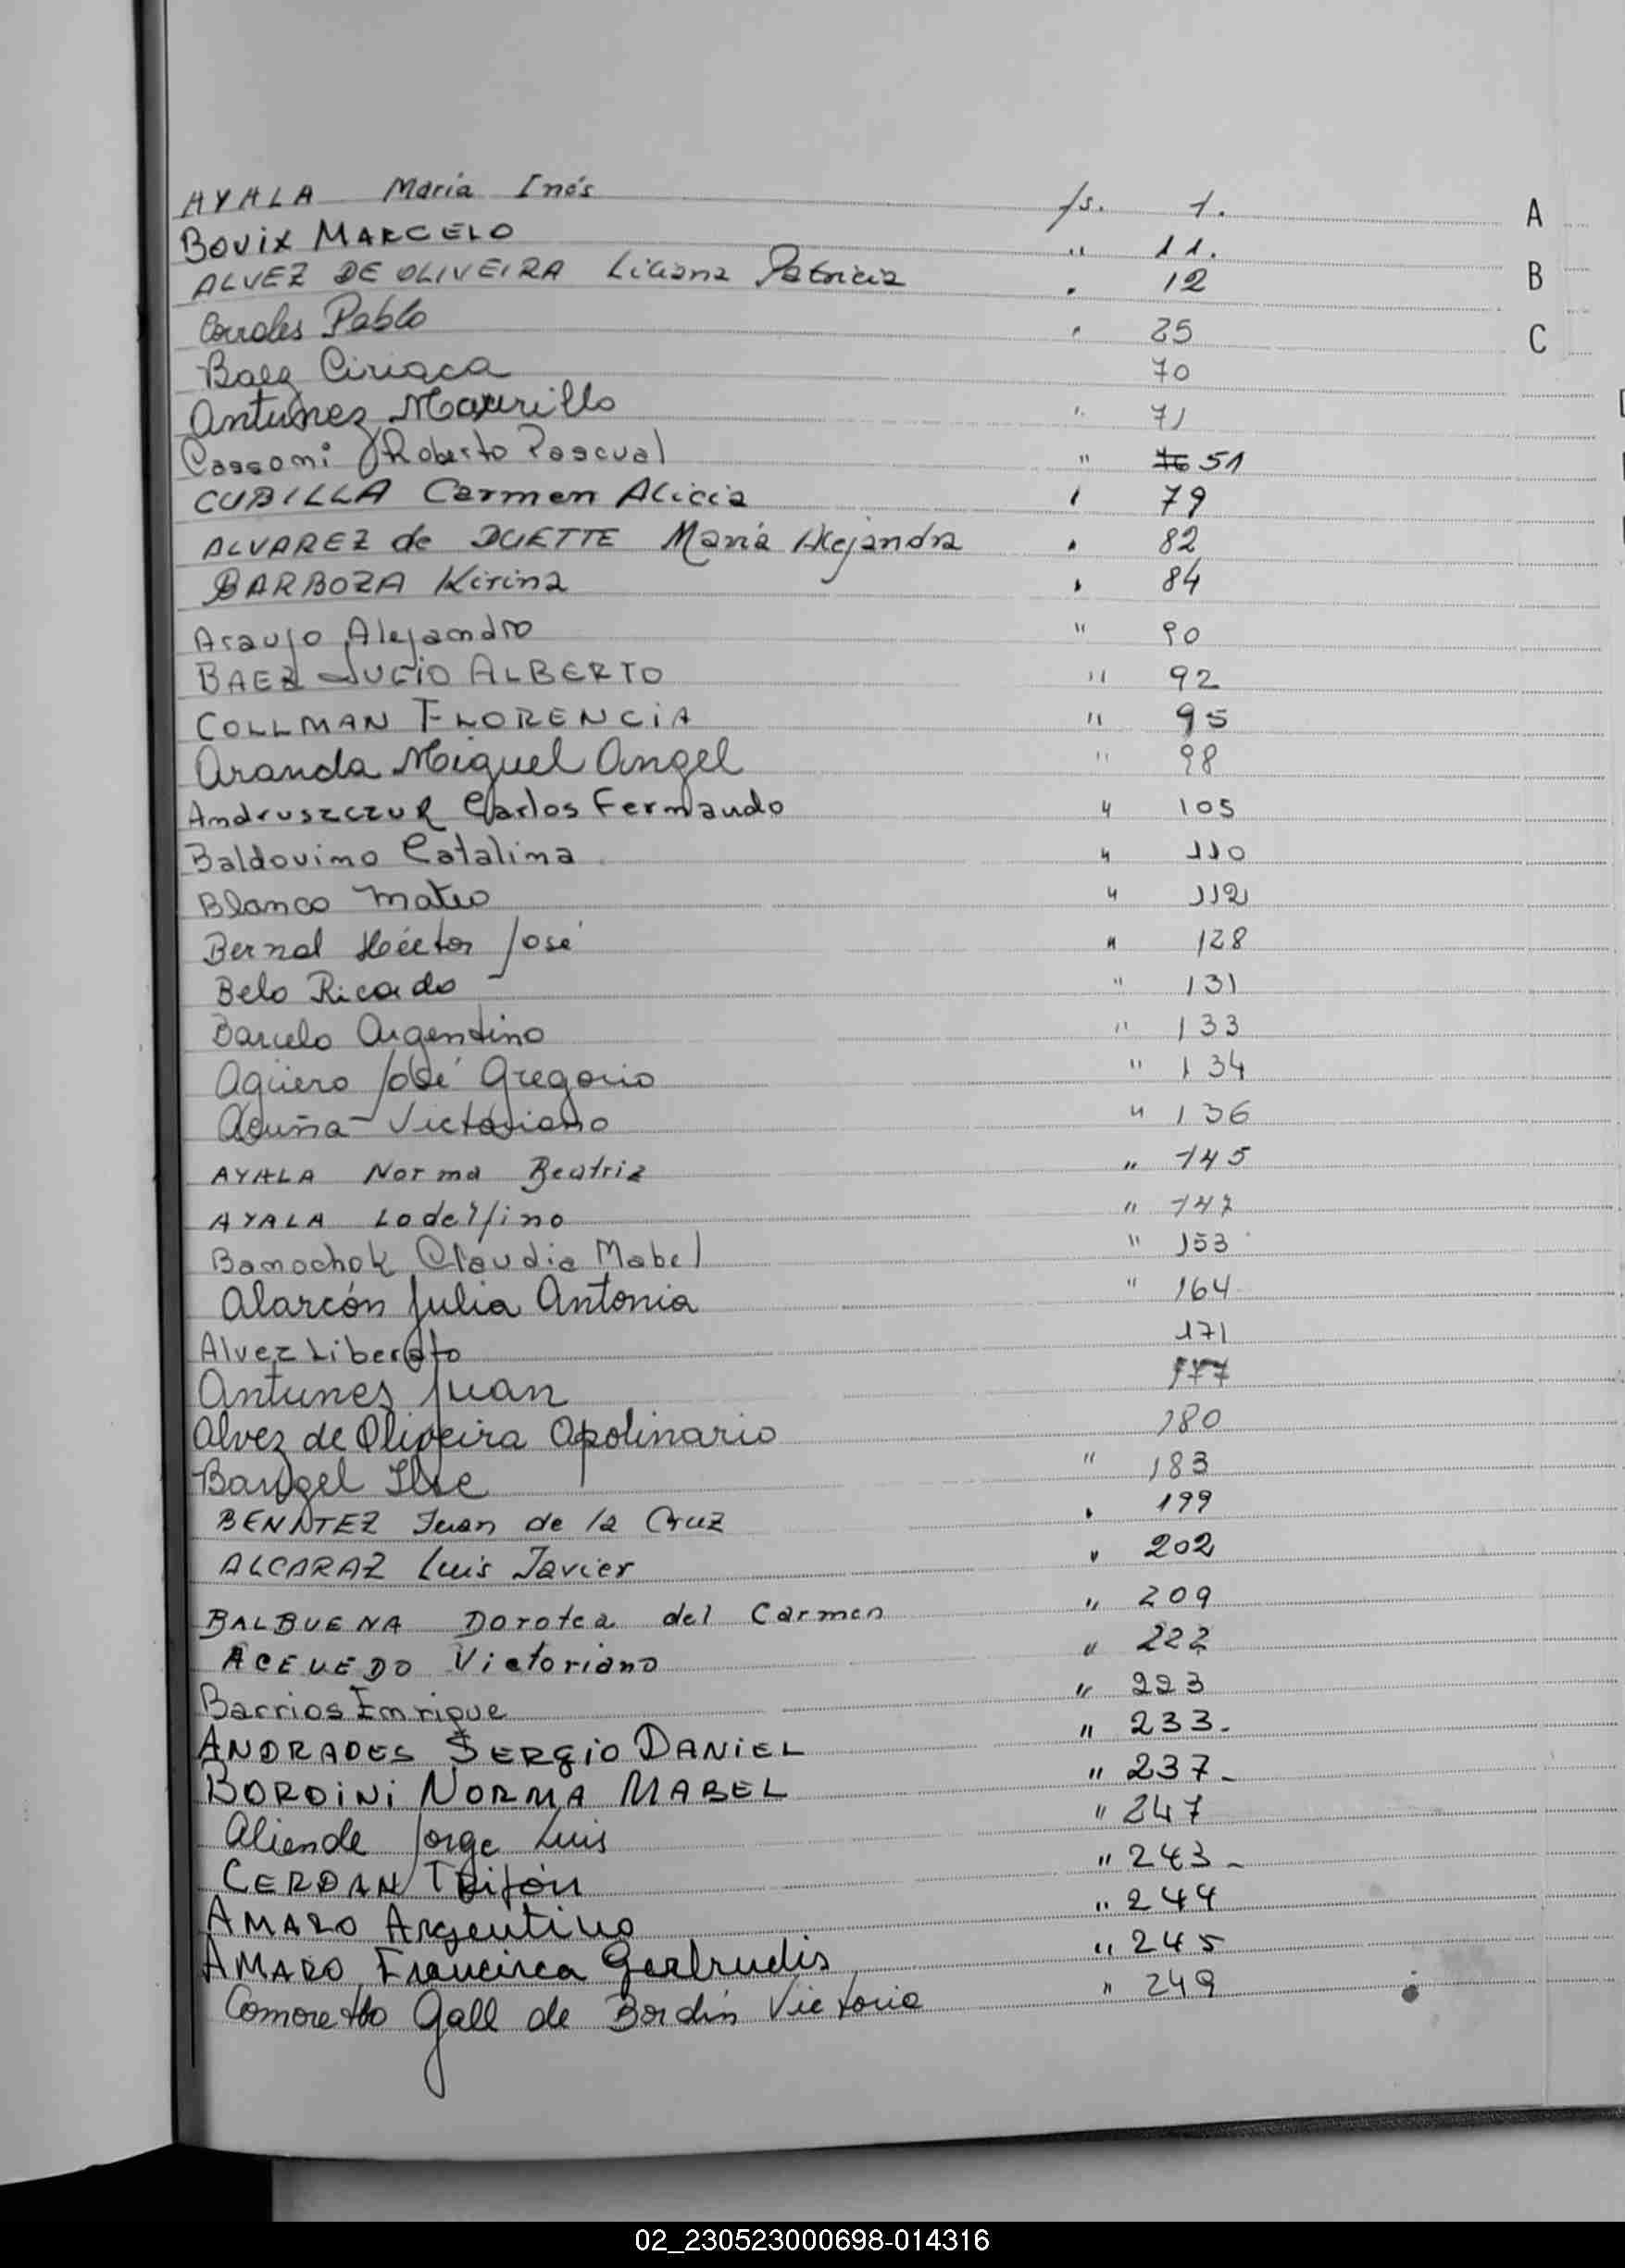 AYALA Maria Inés fs. 1. A
BOVIX MARCELO " 11.
ALVEZ DE OLIVEIRA Liliana Patricia " 12 B
Corrales Pablo " 25 C
Baez Ciriaca 70
Antunez Maurillo " 71
Cassoni Roberto Pascual " 76 51
CUBILLA Carmen Alicia " 79
ALVAREZ de DUETTE María Alejandra " 82
BARBOZA Kirina " 84
Araujo Alejandro " 90
BAEZ LUCIO ALBERTO " 92
COLLMAN FLORENCIA " 95
Aranda Miguel Angel " 98
Andruszczuk Carlos Fernando " 105
Baldovino Catalina " 110
Blanco Mateo " 112
Bernal Héctor José " 128
Belo Ricardo " 131
Barcelo Argentino " 133
Agüero José Gregorio " 134
Acuña Victoriano " 136
AYALA Norma Beatriz " 145
AYALA Lodelfino " 147
Banochok Claudia Mabel " 153
Alarcón Julia Antonia " 164
Alvez Liberato 171
Antunes Juan 177
Alvez de Oliveira Apolinario 180
Bangel Ilse " 183
BENITEZ Juan de la Cruz " 199
ALCARAZ Luis Javier " 202
BALBUENA Dorotea del Carmen " 209
ACEVEDO Victoriano " 222
Barrios Enrique " 223
ANDRADES SERGIO DANIEL " 233-
BORDINI NORMA MABEL " 237-
Aliende Jorge Luis " 247
CERDAN Trifón " 243-
AMARO Argentino " 244
AMARO Francisca Gertrudis " 245
Comoretto Gall de Bordín Victoria " 249
02_230523000698-014316